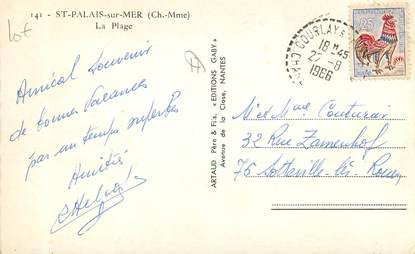 141 - ST-PALAIS-sur-MER (Ch.-Mme)
La Plage
lot
Amical Souvenir
de bonnes Vacances
par un temps superbe
Amitiés
ARTAUD Père & Fils, "EDITIONS GABY"
Avenue de la Close, NANTES
COURLAY S
18H45
27-8
1966
0,25
Mr et Mme Couturier
32 Rue Zamenhof
76 Sotteville-lès-Rouen